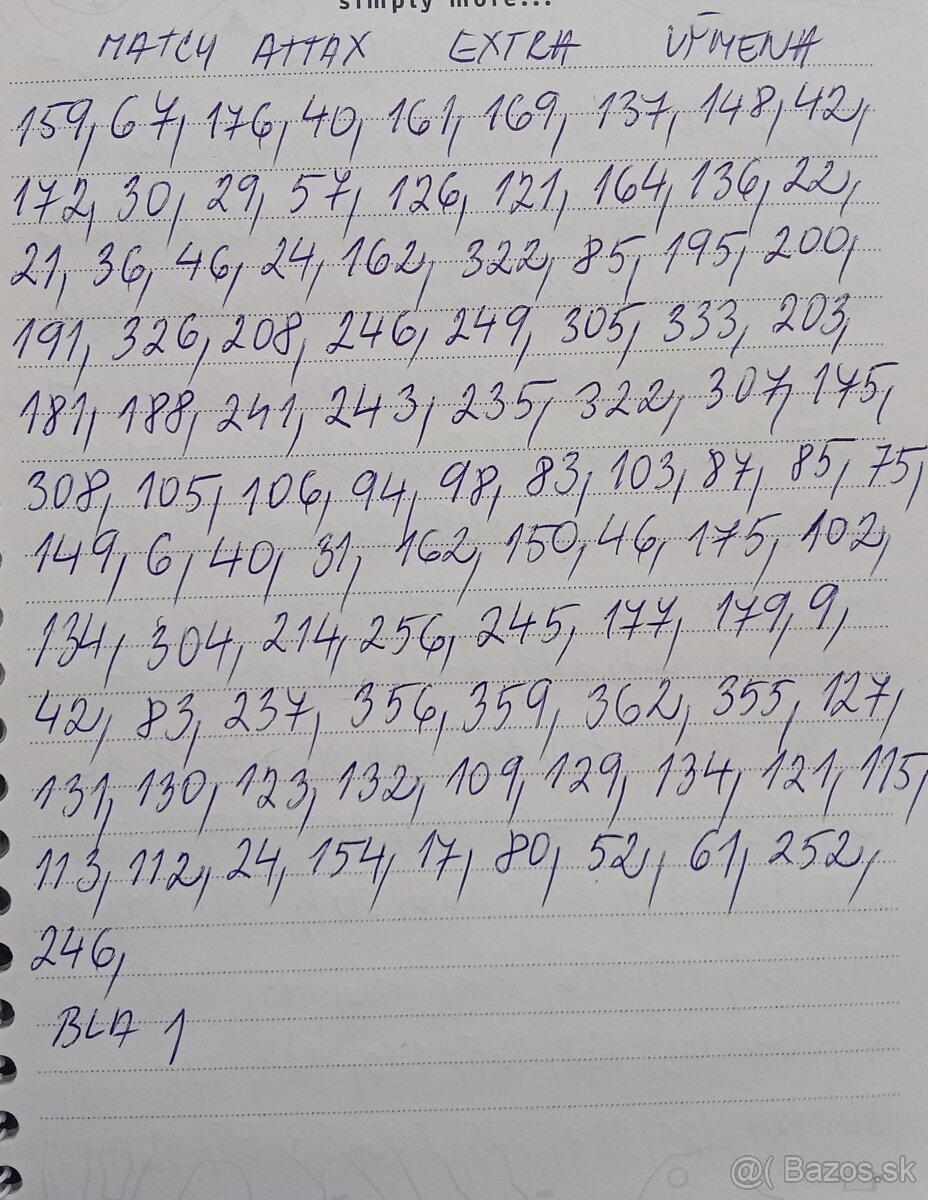 simply more...
MATCH ATTAX EXTRA VÝMENA
159, 67, 176, 40, 161, 169, 137, 148, 42,
172, 30, 29, 57, 126, 121, 164, 136, 22,
21, 36, 46, 24, 162, 322, 85, 195, 200,
191, 326, 208, 246, 249, 305, 333, 203,
181, 188, 241, 243, 235, 322, 307, 175,
308, 105, 106, 94, 98, 83, 103, 87, 85, 75,
149, 6, 40, 31, 162, 150, 46, 175, 102,
134, 304, 214, 256, 245, 177, 179, 9,
42, 83, 237, 356, 359, 362, 355, 127,
131, 130, 123, 132, 109, 129, 134, 121, 115,
113, 112, 24, 154, 17, 80, 52, 61, 252,
246,
BLA 1
@( Bazos.sk